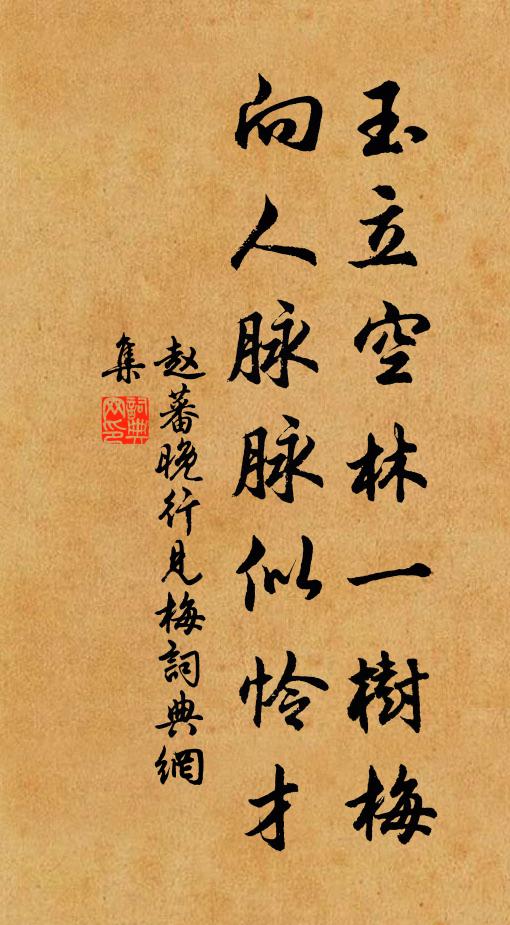 玉立空林一樹梅
向人脉脉似怜才
赵蕃晚行見梅詞典網
集
詞典網印